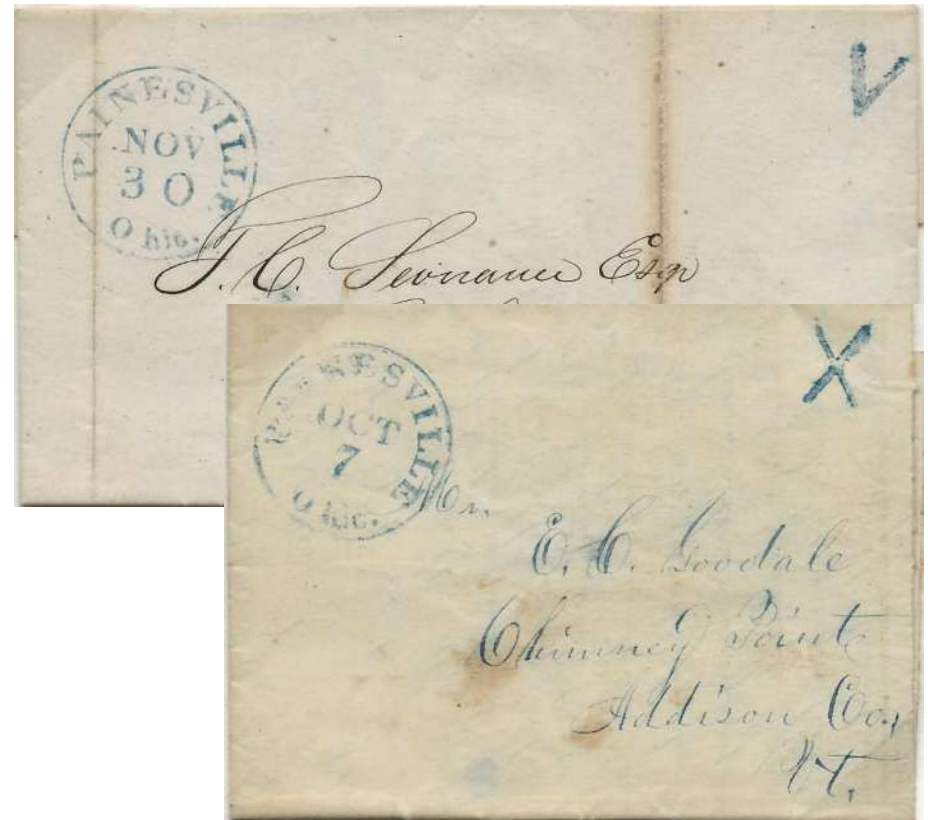 PAINESVILLE
NOV
30
Ohio.
V
T. C. Severance Esqr
PAINESVILLE
OCT
7
Ohio.
X
Mr.
E. C. Goodale
Chimney Point
Addison Co,
Vt.